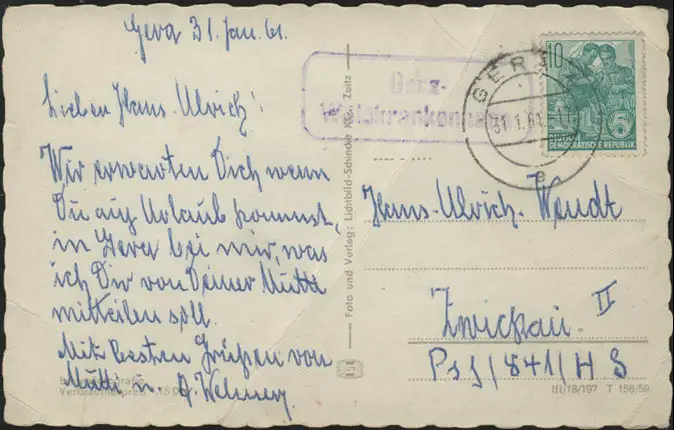 Gera 31. Jan. 61.
Lieben Hans-Ulrich!
Wir erwarten Dich wenn
Du auf Urlaub kommst,
in Gera bei mir, was
ich Dir von Deiner Mutti
mitteilen soll.
Mit besten Grüßen von
Mutti u.
Gera-
Waldkrankenhaus
GERA
31.1.61.-11
e
10
5
DEUTSCHE
DEMOKRATISCHE REPUBLIK
Foto und Verlag: Lichtbild-Schincke KG. Zeitz
Hans-Ulrich Wendt
Zwickau II
841/H S
III/18/197 T 158/59